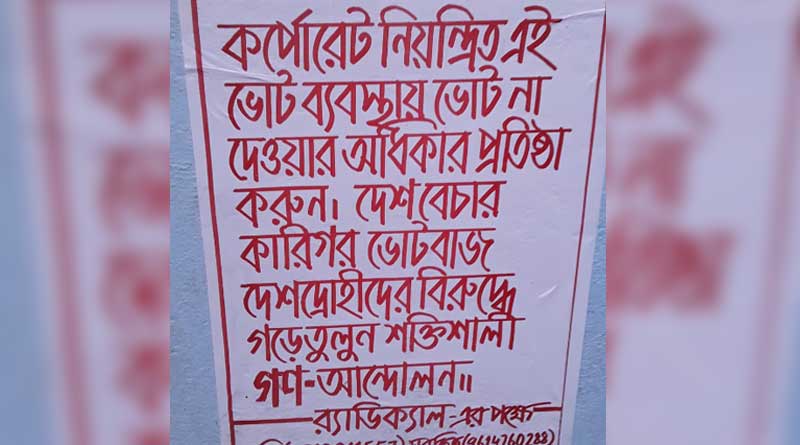 কর্পোরেট নিয়ন্ত্রিত এই
ভোট ব্যবস্থায় ভোট না
দেওয়ার অধিকার প্রতিষ্ঠা
করুন। দেশ বেচার
কারিগর ভোটবাজ
দেশদ্রোহীদের বিরুদ্ধে
গড়েতুলুন শক্তিশালী
গণ-আন্দোলন॥
র‍্যাডিক্যাল-এর পক্ষে
(9614760288)